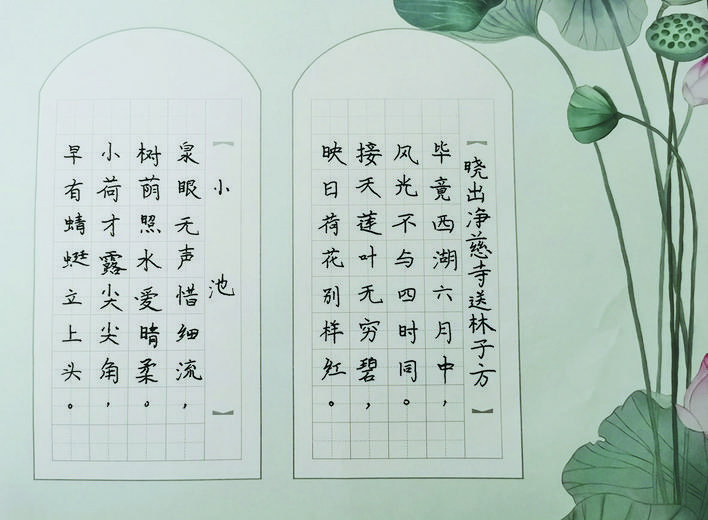 晓出净慈寺送林子方
毕竟西湖六月中，
风光不与四时同。
接天莲叶无穷碧，
映日荷花别样红。
小池
泉眼无声惜细流，
树荫照水爱晴柔。
小荷才露尖尖角，
早有蜻蜓立上头。